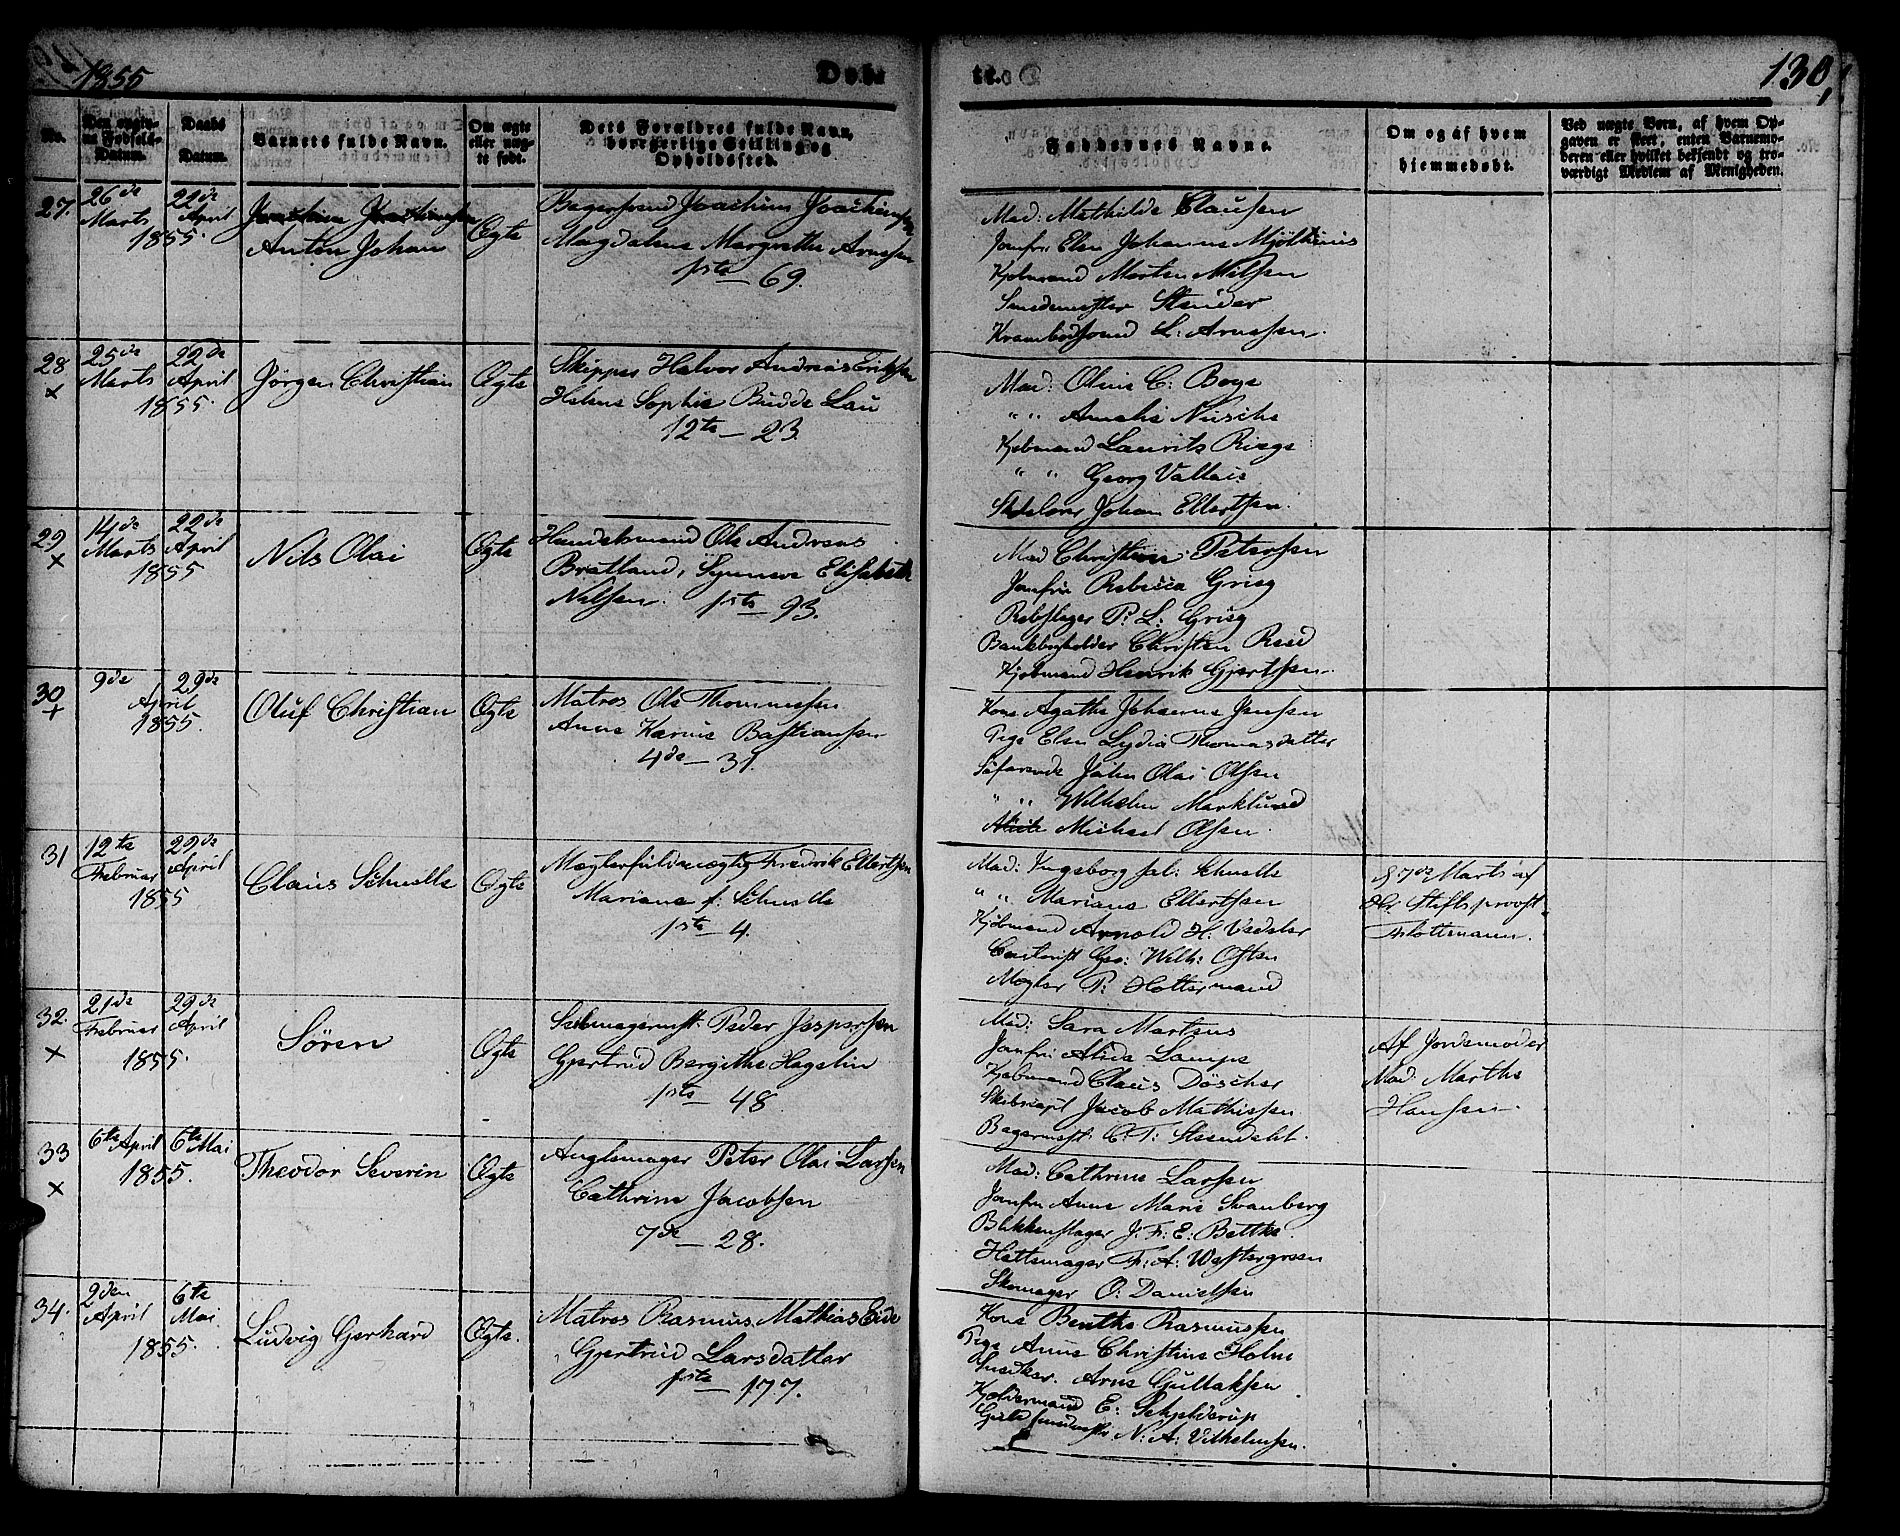 1855
Døb-
te.
130,
No.
Den opgiv-
ne Fødsels-
Datum.
Daabs
Datum.
Barnets fulde Navn.
Om ægte
eller uæg-
te født.
Dets Forældres fulde Navn,
borgerlige Stilling og
Opholdssted.
Faddernes Navne.
Om og af hvem
hjemmedøbt.
Ved uægte Børn, af hvem Op-
gaven er skeet, enten Barnemo-
deren eller hvilket bekjendt og tro-
værdigt Medlem af Menigheden.
27.
26de
Marts
22de
April
1855.
Anton Johan
Ægte
Bagersvend Joachim Joachimsen
Magdalena Margrethe Arnesen
1ste — 69.
Mad: Mathilde Clausen
Jomfru Elen Johanne
Kjøbmand Morten Nilsen
Smedemester Stender
Krambodsvend L: Arnesen.
28
×
25de
Marts
22de
April
1855.
Jørgen Christian
Ægte
Skipper Halvor Andreas Eriksen
Helene Sophie Budde Lau
12te — 23.
Mad: Oline C. Boge
" " Amalie Nitsche
Kjøbmand Laurits Riege
" " Georg Vallace
Johan Ellertsen.
29
×
14de
Marts
22de
April
1855
Nils Olai
Ægte
Handelsmand Ole Andreas
Bratland, Synneve Elisabeth
Nilsen. 1ste — 93.
Mad Christine Petersen
Jomfru Rebecca Grieg
Rebslager P: L: Grieg
Bankbogholder Christen
Kjøbmand Henrik Gjertsen.
30
+
9de
April
29de
1855.
Oluf Christian
Ægte
Matros Ole Thommesen
Anne Karine Bastiansen
4de — 31.
Kone Agathe Johanne Jensen
Pige Elen Lydia Thomasdatter
Søfarende John Olai Olsen
" " Wilhelm Marklund
Michael Olsen.
31
12te
Februar
29de
April
1855
Claus Schnelle
Ægte
Mæglerfuldmægtig Fredrik Ellertsen
Mariane f: Schnelle
1ste — 4.
Mad: Ingeborg sal: Schnelle
" " Mariane Ellertsen
Kjøbmand Arnold H. Vedeler
Geo: Wilh: Olsen
Mægler P: Holtermand
d 7de Marts af
Hr. Stiftsprovst
Flottmann.
32.
×
21de
Februar
29de
April
1855.
Søren
Ægte
Peder Jespersen
Gjertrud Bergithe Hagelin
1ste — 48
Mad: Sara Martens
Jomfru Alida Lampe
Kjøbmand Claus Döscher
Skibscapt Jacob Mathiesen
Bagermest. C. T: Steendahl.
Af Jordemoder
Mad. Marthe
Hansen.
33
×
6te April
6te Mai
1855.
Theodor Severin
Ægte
Anglemager Peter Olai Larsen
Cathrine Jacobsen
7de — 28.
Mad: Cathrine Larsen
Jomfru Anne Marie Svanberg
Blikkenslager J. F: E: Bettke.
Hattemager F: A: Westergreen
Skomager O: Danielsen
34.
2den
April
6te
Mai
1855.
Ludvig Gerhard
Ægte.
Matros Rasmus Mathias Eide
Gjertrud Larsdatter
1ste — 177.
Kone Benthe Rasmussen
Pige Anne Christine Holm
Snedker. Arne Gullaksen
Kjeldermand E: Schjelderup
N: A: Vilhelmsen.